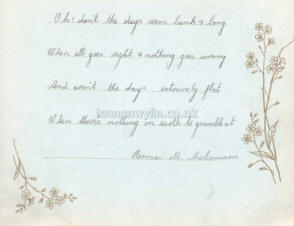 Oh! don't the days seem lank & long
When all goes right & nothing goes wrong
And aren't the days extremely flat
When there's nothing on earth to grumble at
lennonwylie.co.uk
Herma M.